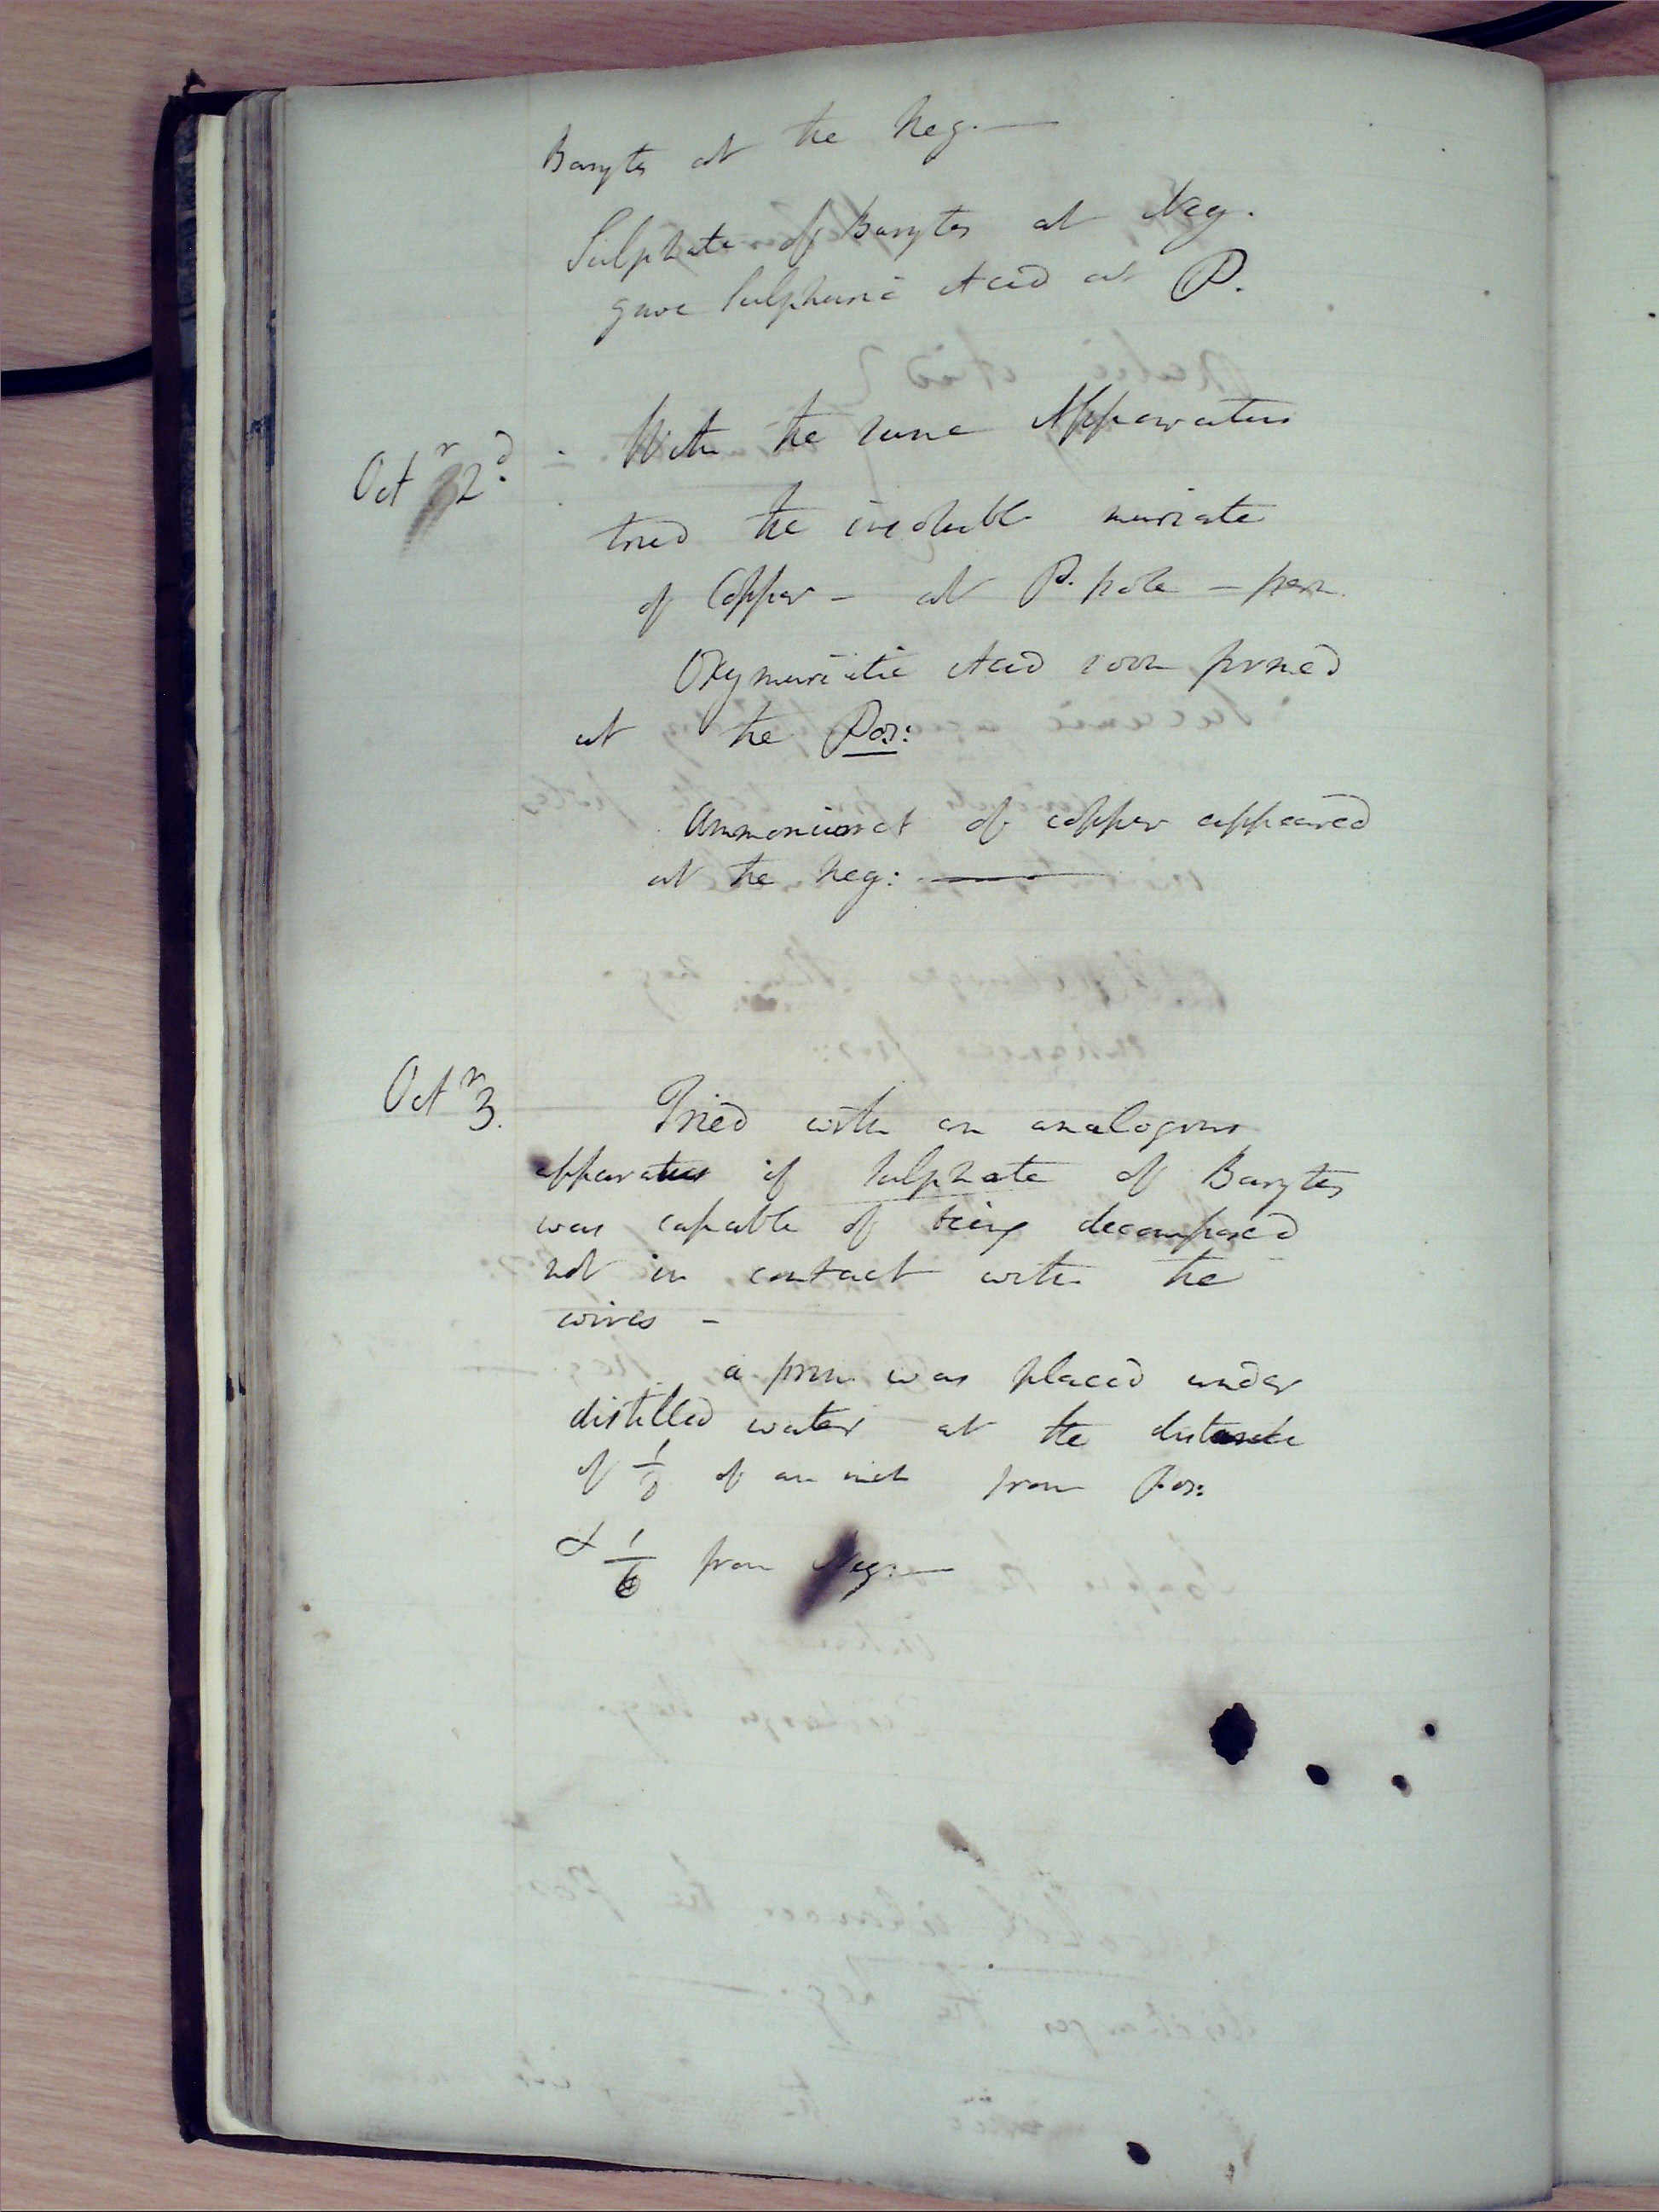 Barytes at the Neg. —
Sulphate of Barytes at Neg.
gave Sulphuric Acid at P.
Octr 2d. - With the same Apparatus
tried the insoluble muriate
of Copper - at P. pole - pure
Oxymuriatic Acid soon formed
at the Pos:
Ammoniuret of copper appeared
at the Neg: —
Octr 3. Tried with an analogous
apparatus if Sulphate of Barytes
was capable of being decomposed
not in contact with the
wires -
a prism was placed under
distilled water at the distance
of 1/8 of an inch from Pos:
& 1/6 from Neg: —